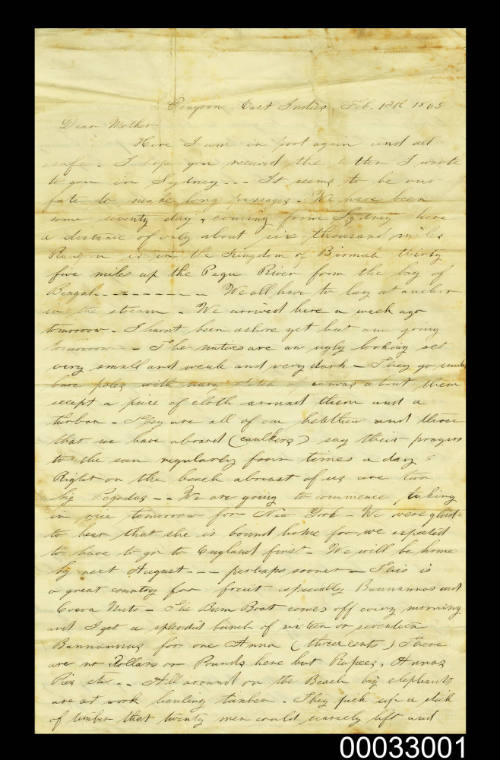 East Indies Feb. 18th 18
Dear Mother
Here I am in port again and all
safe. I hope you received the letter I wrote
to you in Sydney -- It seems to be our
fate to make long passages. We have been
some seventy days coming from Sydney here
a distance of only about six thousand miles
is in the Kingdom of Birmah thirty
five miles up the Pegu River from the bay of
Bengal - - - - - - - We all have to lay at anchor
in the stream. We arrived here a week ago
tomorrow. I havnt been ashore yet but am going
tomorrow - The natives are an ugly looking set
very small and weak and very dark - They go under
bare poles with nary stitch of canvas about them
except a piece of cloth around them and a
turban. They are all of em heathen and those
that we have aboard (caulkers) say their prayers
to the sun regularly four times a day
Right on the beach abreast of us are two
big Pagodas -- We are going to commence taking
in rice tomorrow for New York - We were glad
to hear that she is bound home for we expected
to have to go to England first - We will be home
by next August -- perhaps sooner - This is
a great country for fruit especially Bannannas and
Cocoa Nuts - The Bum Boat comes off every morning
and I get a splendid bunch of sixteen or seventeen
Bannannas for one Anna (three cents) There
are no Dollars or Pounds here but Rupees, Annas
Pies etc -- All around on the Beach big elephants
are at work hauling timber. They pick up a stick
of timber that twenty men could scarcely lift and
00033001